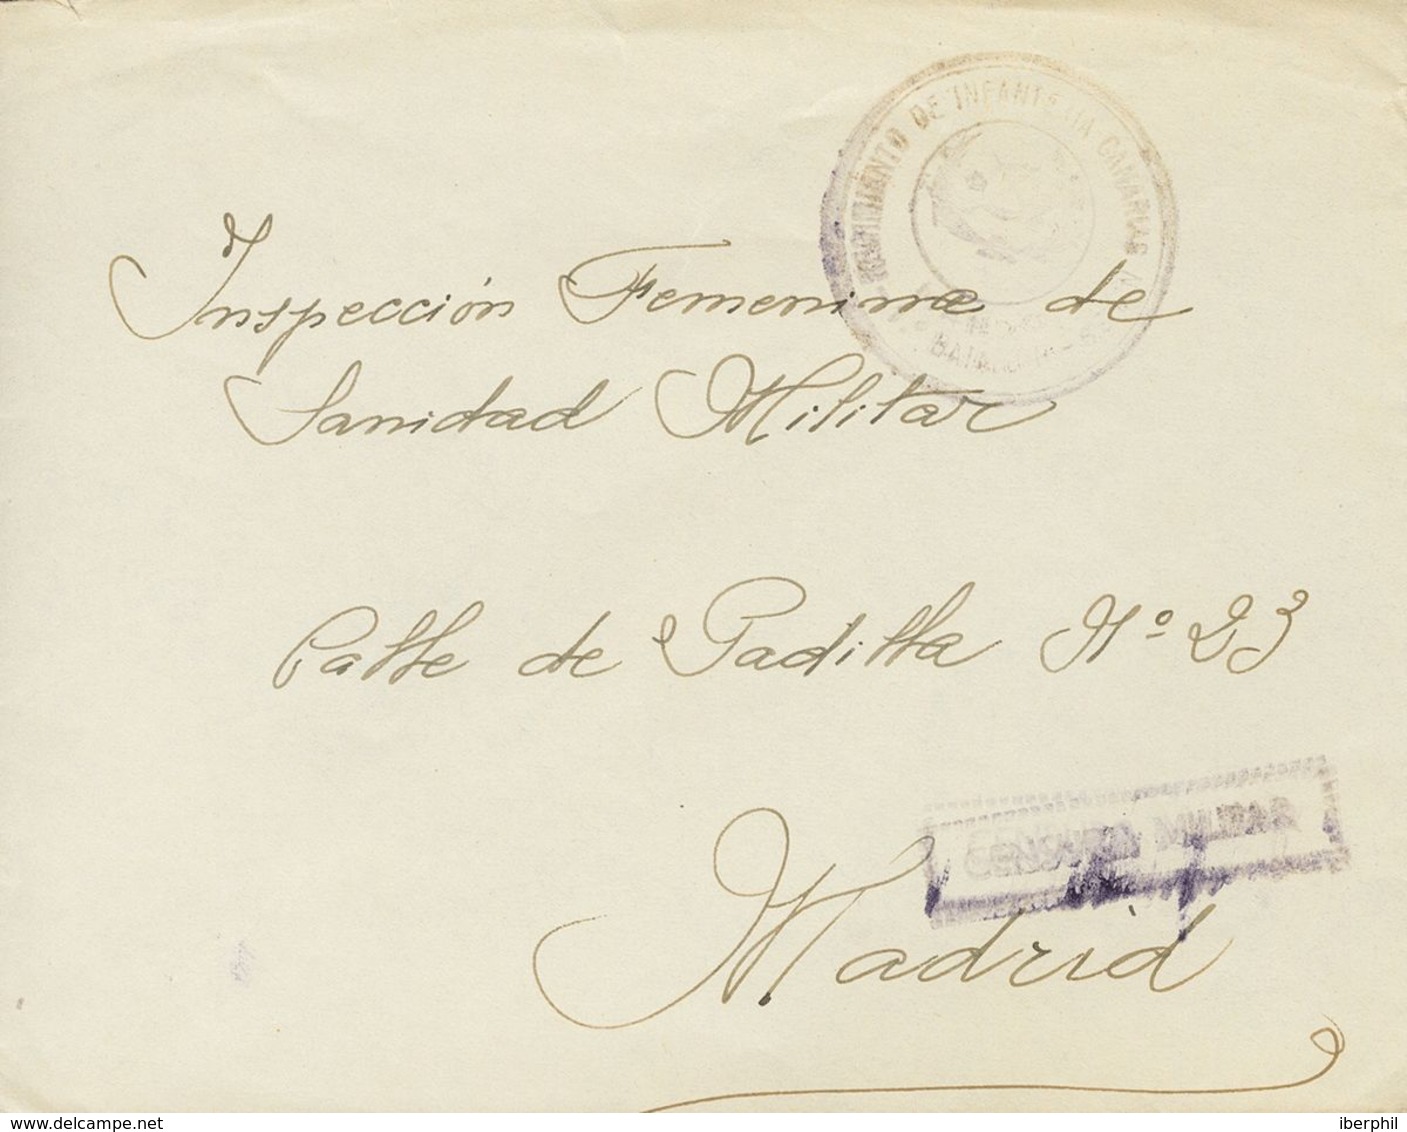 REGIMIENTO DE INFANTERIA CANARIAS
Inspección Femenina de
Sanidad Militar
Calle de Padilla Nº 23
CENSURA MILITAR
Madrid
www.delcampe.net
iberphil